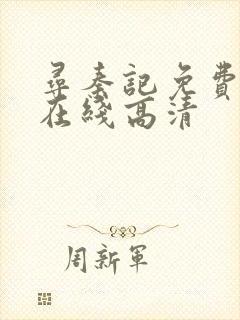 尋秦記免費
在綫高清
周新軍